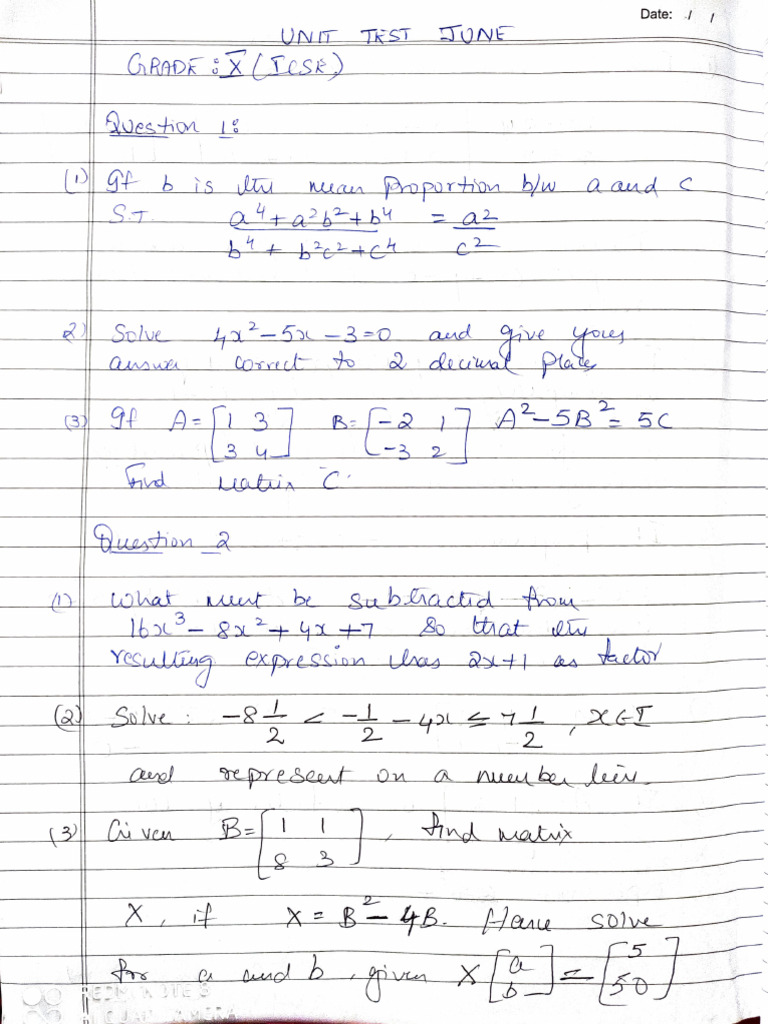 Date: / /
UNIT TEST JUNE
GRADE : X (ICSE)
Question 1:
(1) If b is the mean proportion b/w a and c
S.T. (a⁴ + a²b² + b⁴)/(b⁴ + b²c² + c⁴) = a²/c²
2) Solve 4x² – 5x – 3 = 0 and give your
answer correct to 2 decimal places
(3) If A = [1 3; 3 4] B = [-2 1; -3 2] A² – 5B² = 5C
Find matrix C.
Question 2
(1) What must be subtracted from
16x³ – 8x² + 4x + 7 so that the
resulting expression has 2x+1 as factor
(2) Solve : -8 1/2 < -1/2 – 4x ≤ 7 1/2 , x∈I
and represent on a number line.
(3) Given B = [1 1; 8 3] , find matrix
X, if X = B² – 4B. Hence solve
for a and b, given X [a; b] = [5; 50]